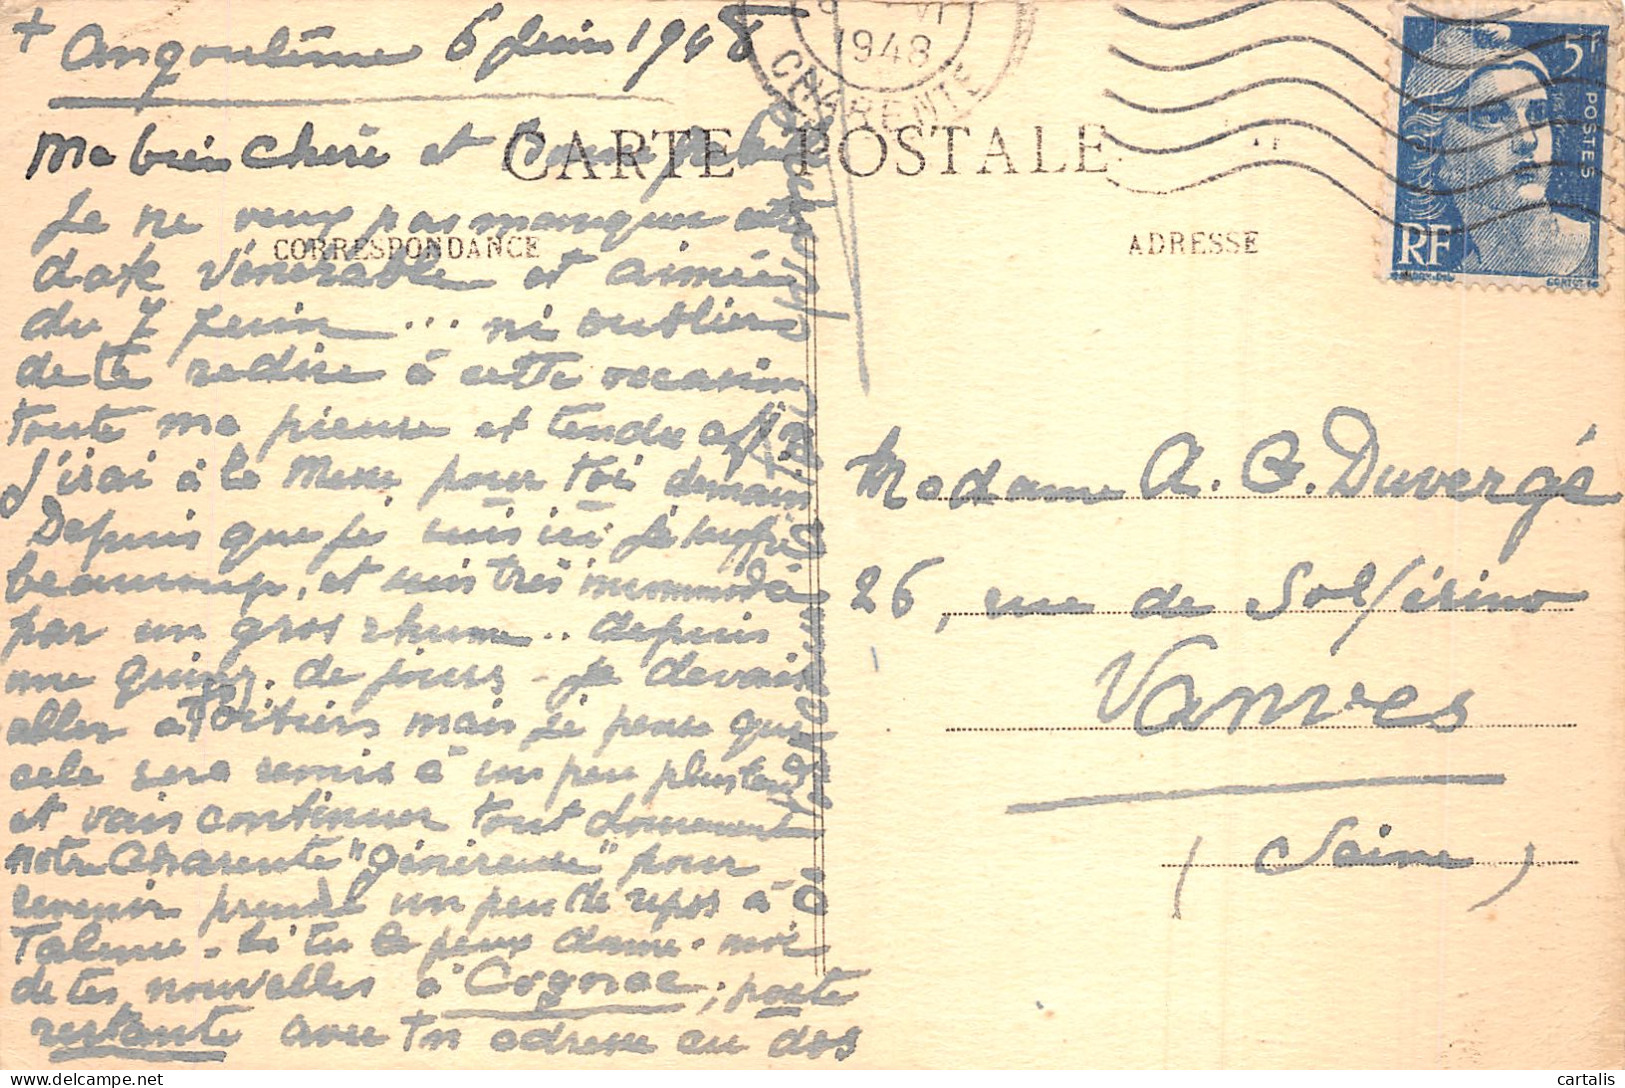 + Angoulême 6 juin 1948
Ma bien chère et
Je ne veux pas manquer cette
date vénérable et aimée
du 7 juin ... ni oublier
de te redire à cette occasion
toute ma pieuse et tendre affon
J'irai à la Messe pour toi demain
Depuis que je suis ici je souffre
beaucoup, et suis très incommodée
par un gros rhume .. depuis
une quinz. de jours - Je devais
aller à Poitiers mais je pense que
cela sera remis à un peu plus tard
et vais continuer tout doucement
notre Charente "généreuse" pour
revenir prendre un peu de repos à
Talence - Si tu le peux donne-moi
de tes nouvelles à Cognac ; poste
restante avec ton adresse au dos
CARTE POSTALE
CORRESPONDANCE
ADRESSE
1948
CHARENTE
5F
POSTES
RF
Madame A. G. Duvergé
26, rue de Solférino
Vanves
(Seine)
cartalis
delcampe.net